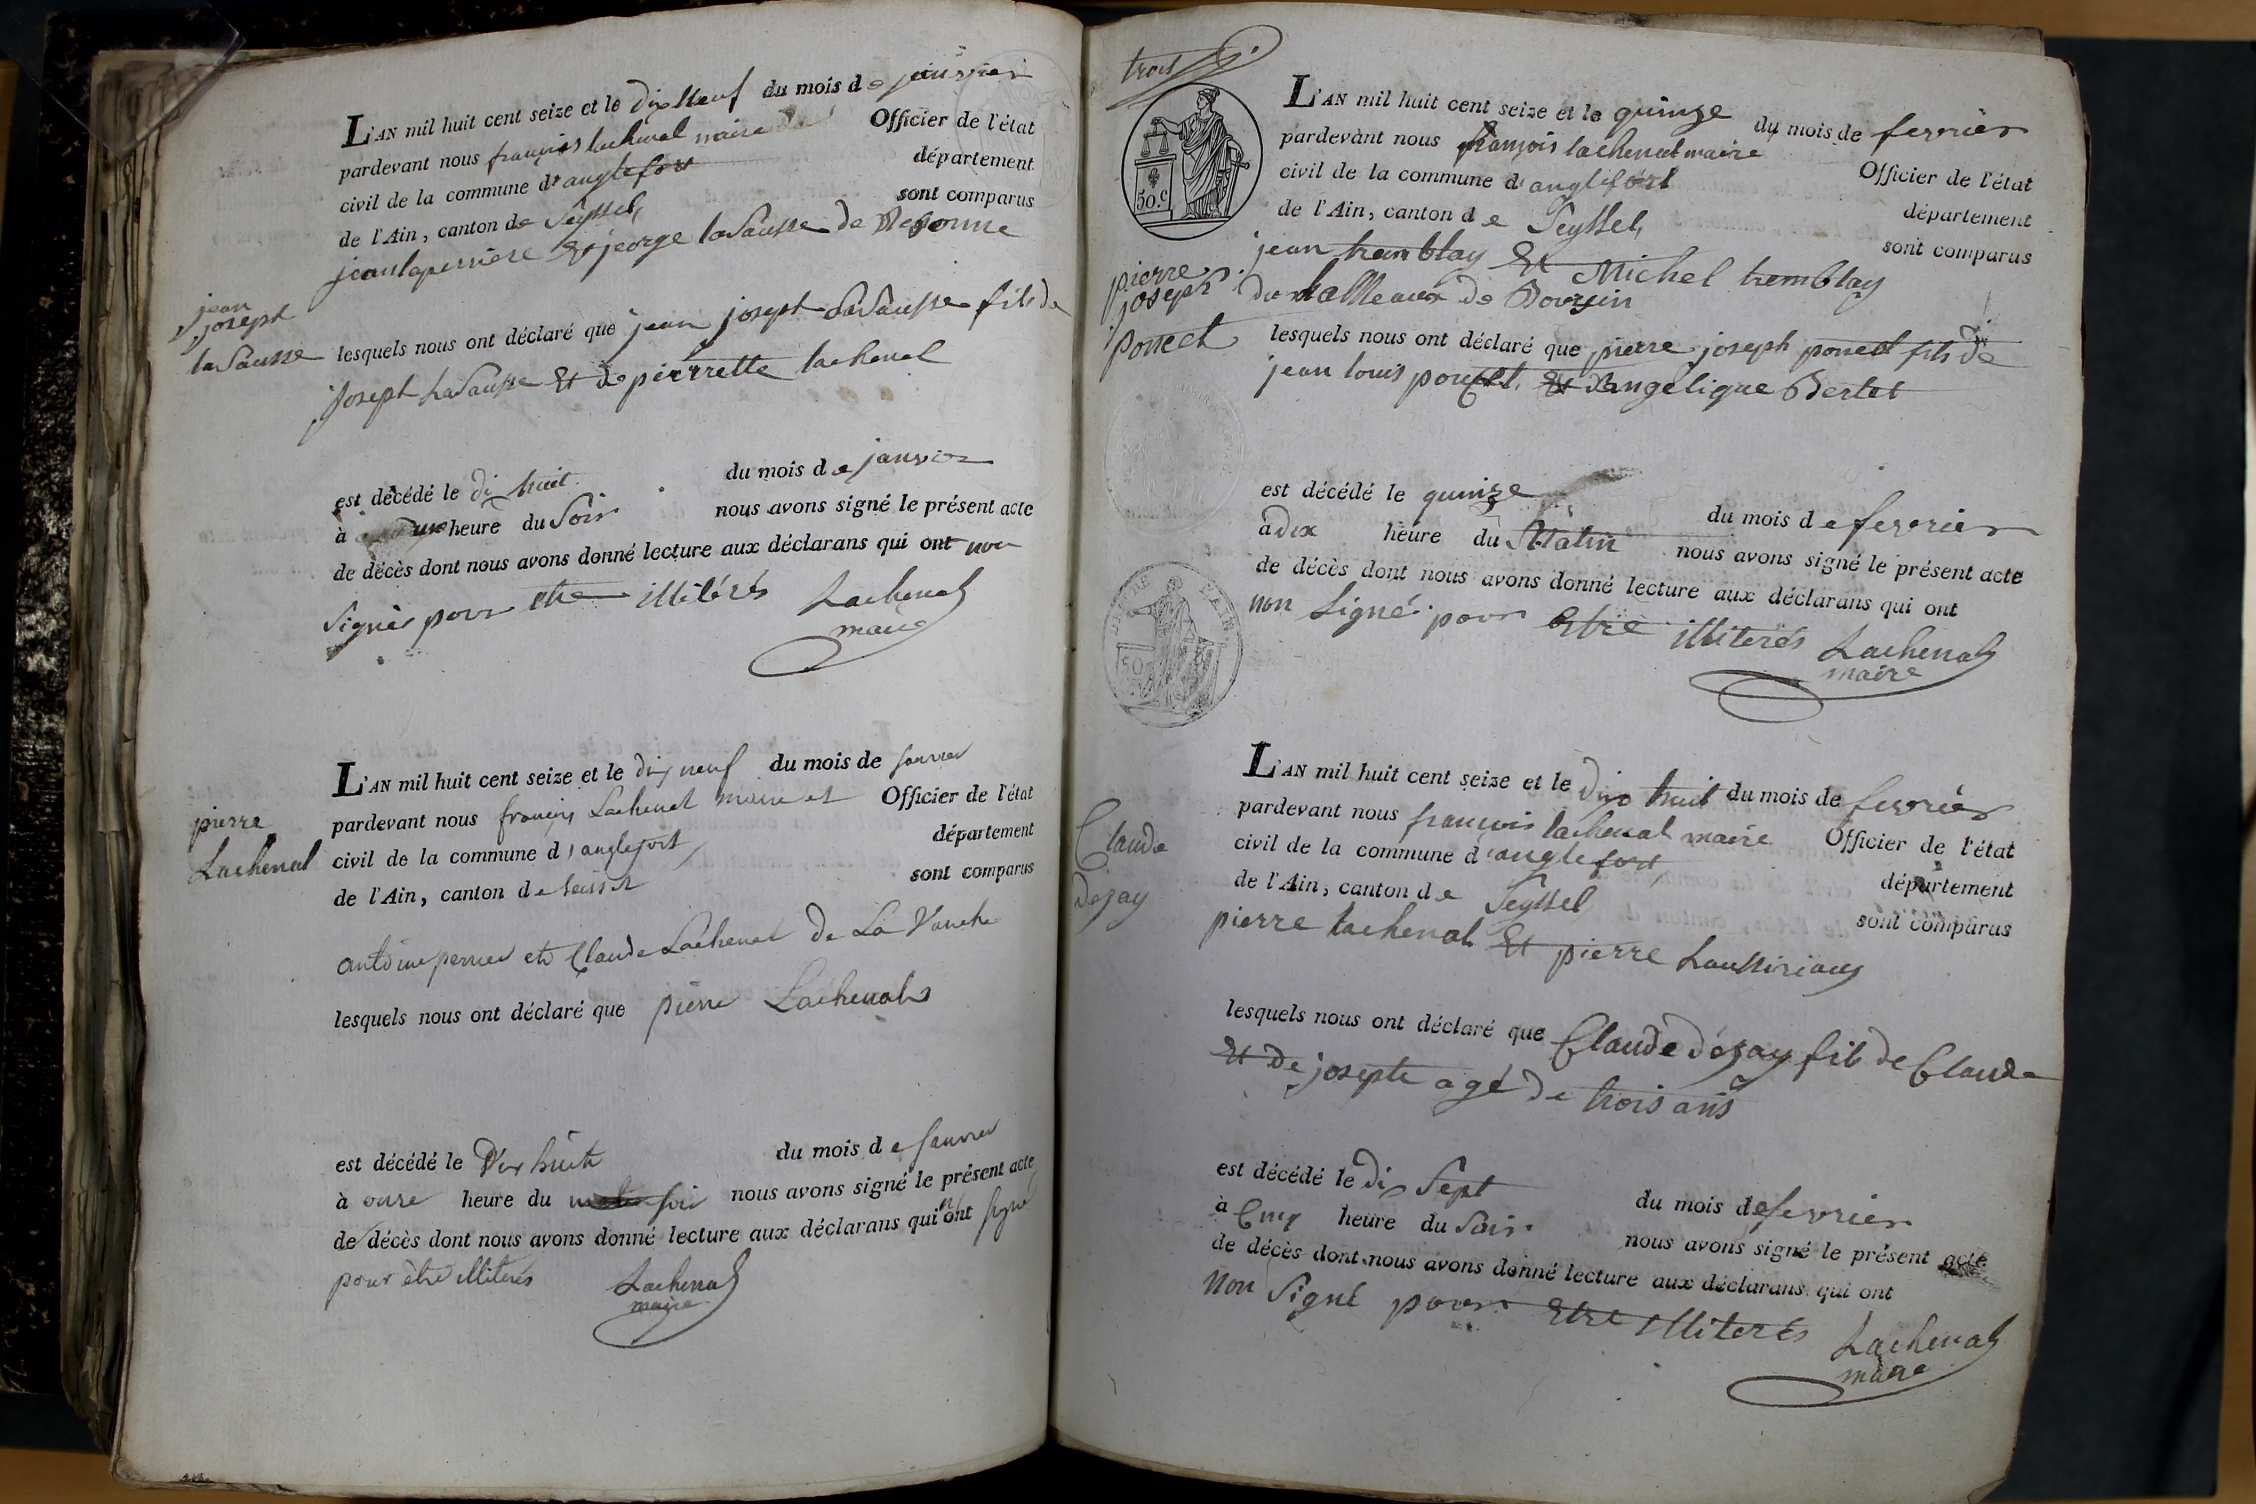 L'AN mil huit cent seize et le dix neuf du mois de janvier
pardevant nous françois lachenal maire Officier de l'état
civil de la commune d'anglefort département
de l'Ain, canton de Seyssel, sont comparus
jean laperriere Et george laSausse de
jean
joseph
laSausse
lesquels nous ont déclaré que jean joseph LaSausse fils de
joseph LaSausse Et de pierrette lachenal
est décédé le dix huit du mois de janvier
à heure du Soir nous avons signé le présent acte
de décès dont nous avons donné lecture aux déclarans qui ont non
Signés pour etre illitérés Lachenal
maire
L'AN mil huit cent seize et le dix neuf du mois de janvier
pierre
Lachenal
pardevant nous françois Lachenal maire et Officier de l'état
civil de la commune d'anglefort, département
de l'Ain, canton de Seissel sont comparus
antoine perrier et Claude Lachenal de La
lesquels nous ont déclaré que pierre Lachenal
est décédé le Dix huit du mois de janvier
à onze heure du soir nous avons signé le présent acte
de décès dont nous avons donné lecture aux déclarans qui n'ont signé
pour être illiterés Lachenal
maire
trois
50.c
L'AN mil huit cent seize et le quinze du mois de fevrier
pardevant nous françois lachenal maire Officier de l'état
civil de la commune d'anglefort département
de l'Ain, canton de Seyssel, sont comparus
jean tremblay Et Michel tremblay
pierre
joseph
poncet
du de
lesquels nous ont déclaré que pierre joseph poncet fils de
jean louis poncet, Et d'angelique Bertet
est décédé le quinze du mois de fevrier
à dix heure du Matin nous avons signé le présent acte
de décès dont nous avons donné lecture aux déclarans qui ont
non Signé pour Etre illiterés Lachenal
maire
50
L'AN mil huit cent seize et le dix huit du mois de fevrier
Claude
Dejay
pardevant nous françois lachenal maire Officier de l'état
civil de la commune d'anglefort, département
de l'Ain, canton de Seyssel sont comparus
pierre lachenal Et pierre
lesquels nous ont déclaré que Claude Déjay fils de Claude
Et De josepte agé De trois ans
est décédé le dix Sept du mois de fevrier
à Cinq heure du Soir nous avons signé le présent acte
de décès dont nous avons donné lecture aux déclarans qui ont
Non Signé pour Etre illiterés Lachenal
maire